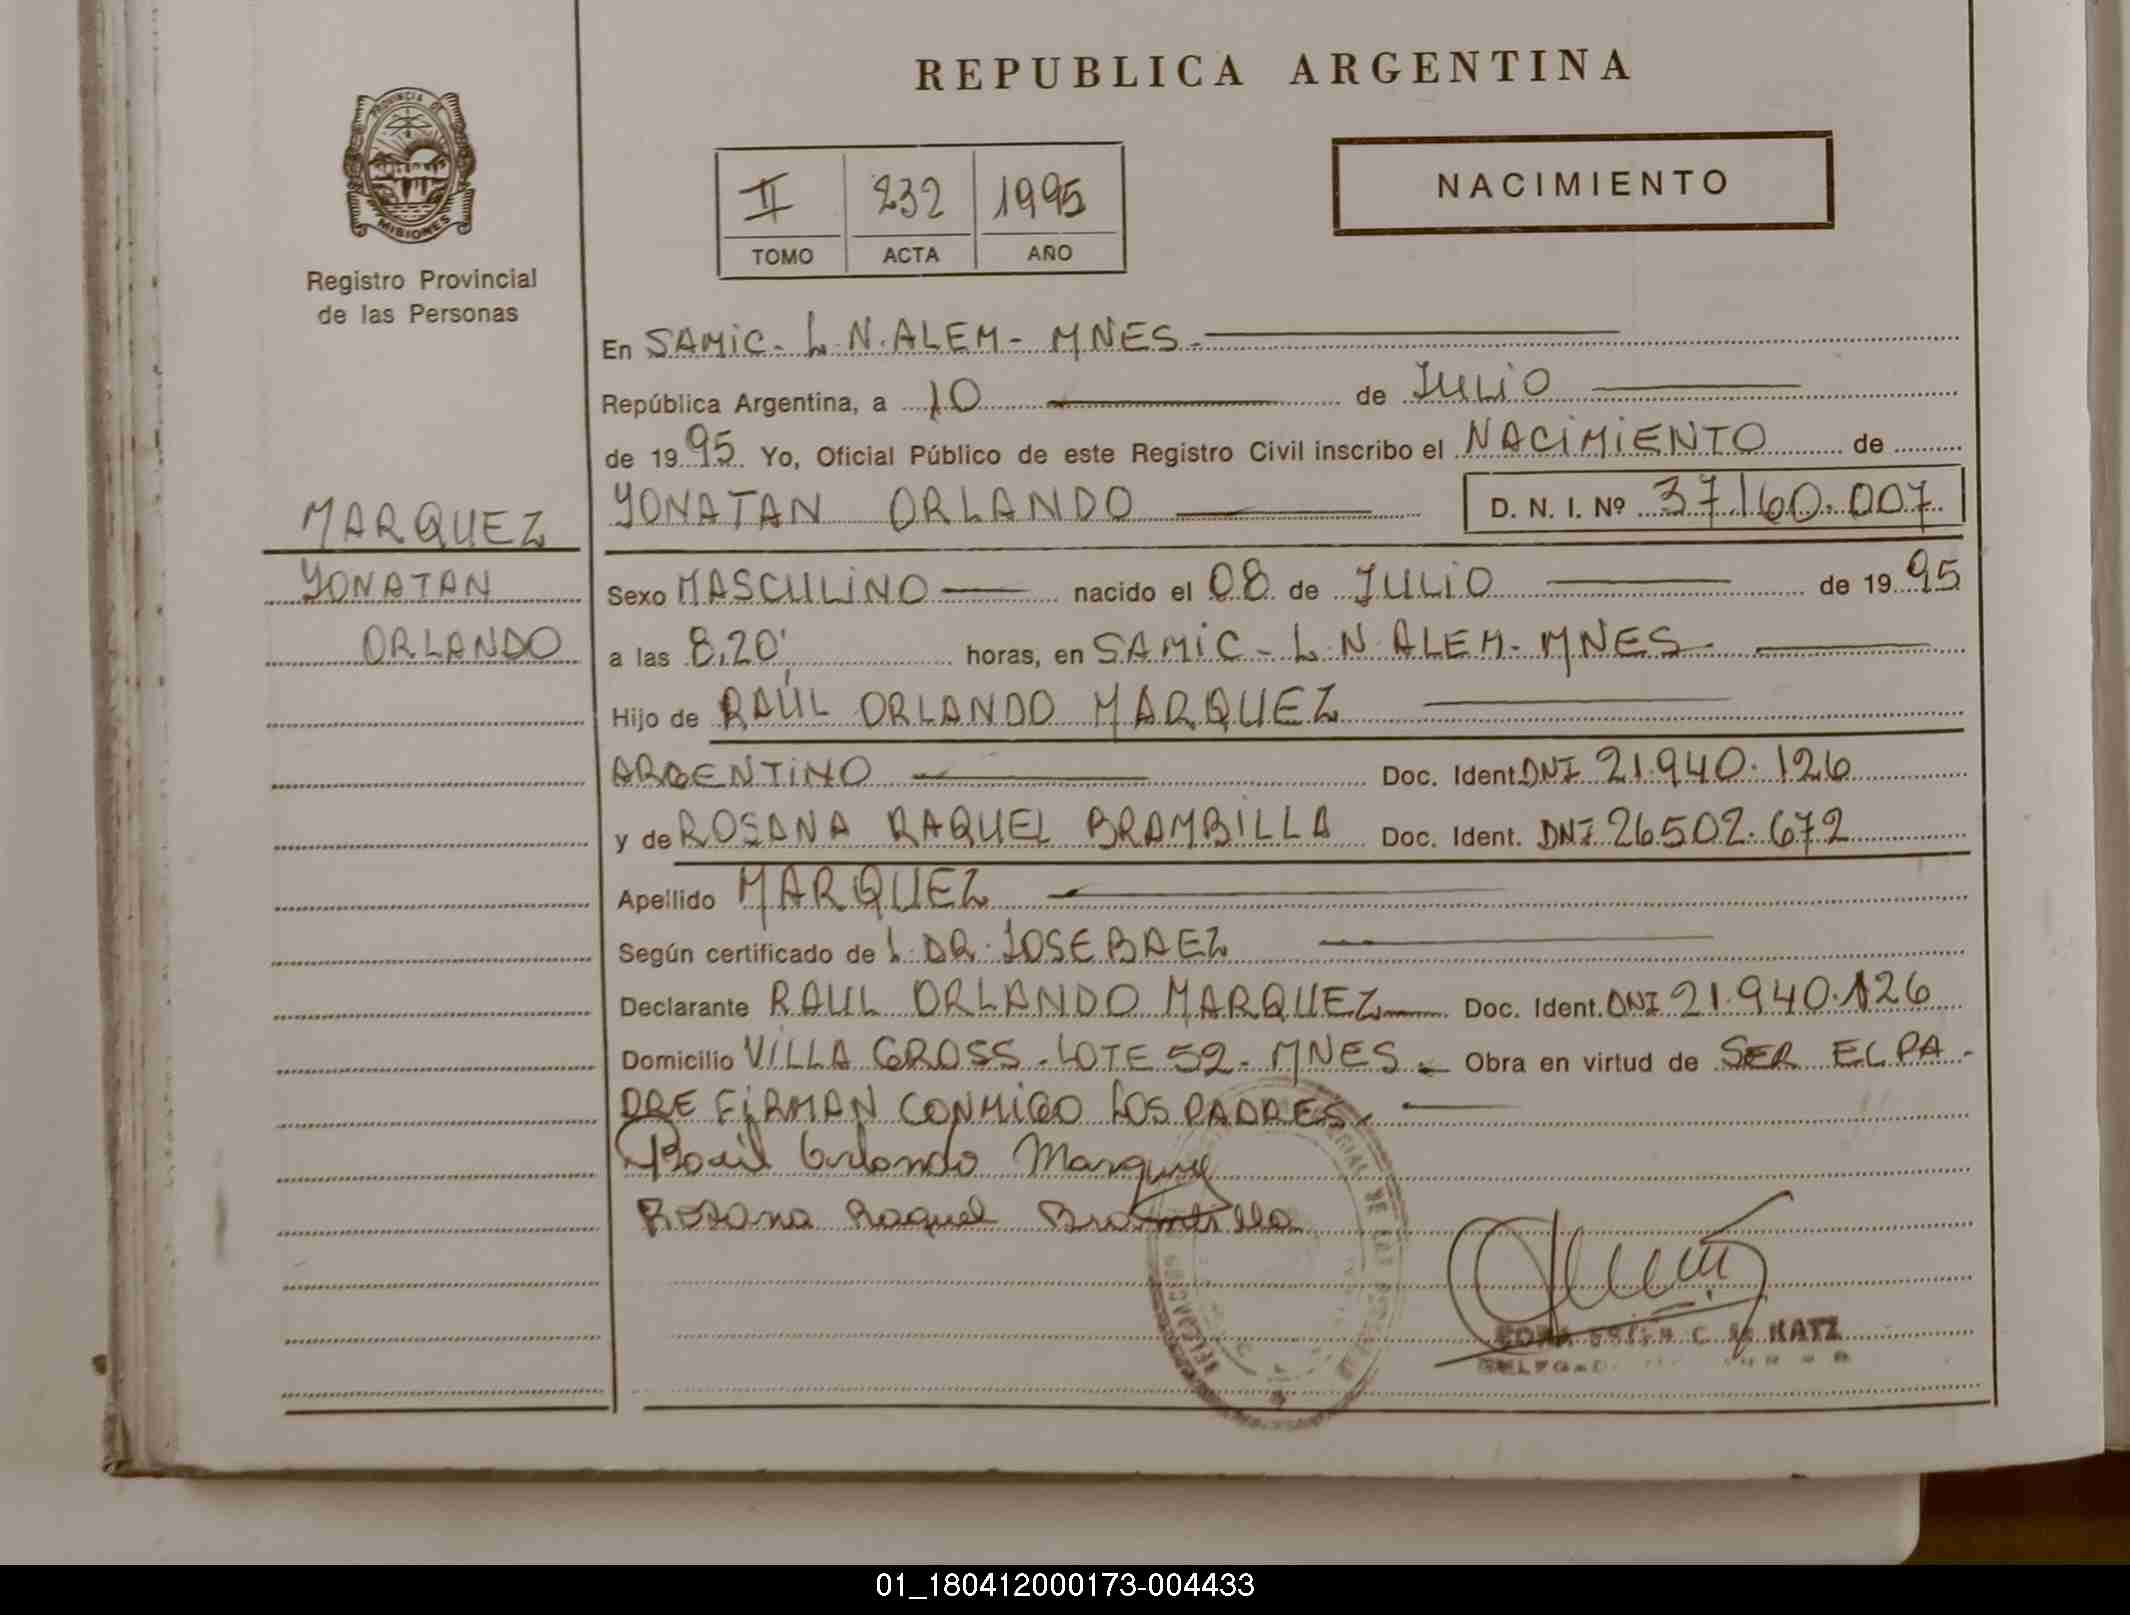 REPUBLICA ARGENTINA
PROVINCIA DE
MISIONES
Registro Provincial
de las Personas
II 232 1995
TOMO ACTA AÑO
NACIMIENTO
En SAMIC - L.N.ALEM - MNES -
República Argentina, a 10 de JULIO
de 1995. Yo, Oficial Público de este Registro Civil inscribo el NACIMIENTO de
YONATAN ORLANDO D. N. I. Nº 37.160.007
MARQUEZ
YONATAN
ORLANDO
Sexo MASCULINO nacido el 08 de JULIO de 1995
a las 8,20' horas, en SAMIC - L.N.ALEM - MNES -
Hijo de RAÚL ORLANDO MARQUEZ
ARGENTINO Doc. Ident. DNI 21.940.126
y de ROSANA RAQUEL BRAMBILLA Doc. Ident. DNI 26.502.672
Apellido MARQUEZ
Según certificado de L. DR. JOSE BAEZ
Declarante RAUL ORLANDO MARQUEZ Doc. Ident. DNI 21.940.126
Domicilio VILLA GROSS - LOTE 52 - MNES - Obra en virtud de SER EL PA-
DRE FIRMAN CONMIGO LOS PADRES.
Raúl Orlando Marquez
Rosana Raquel Brambilla
KATZ
01_180412000173-004433